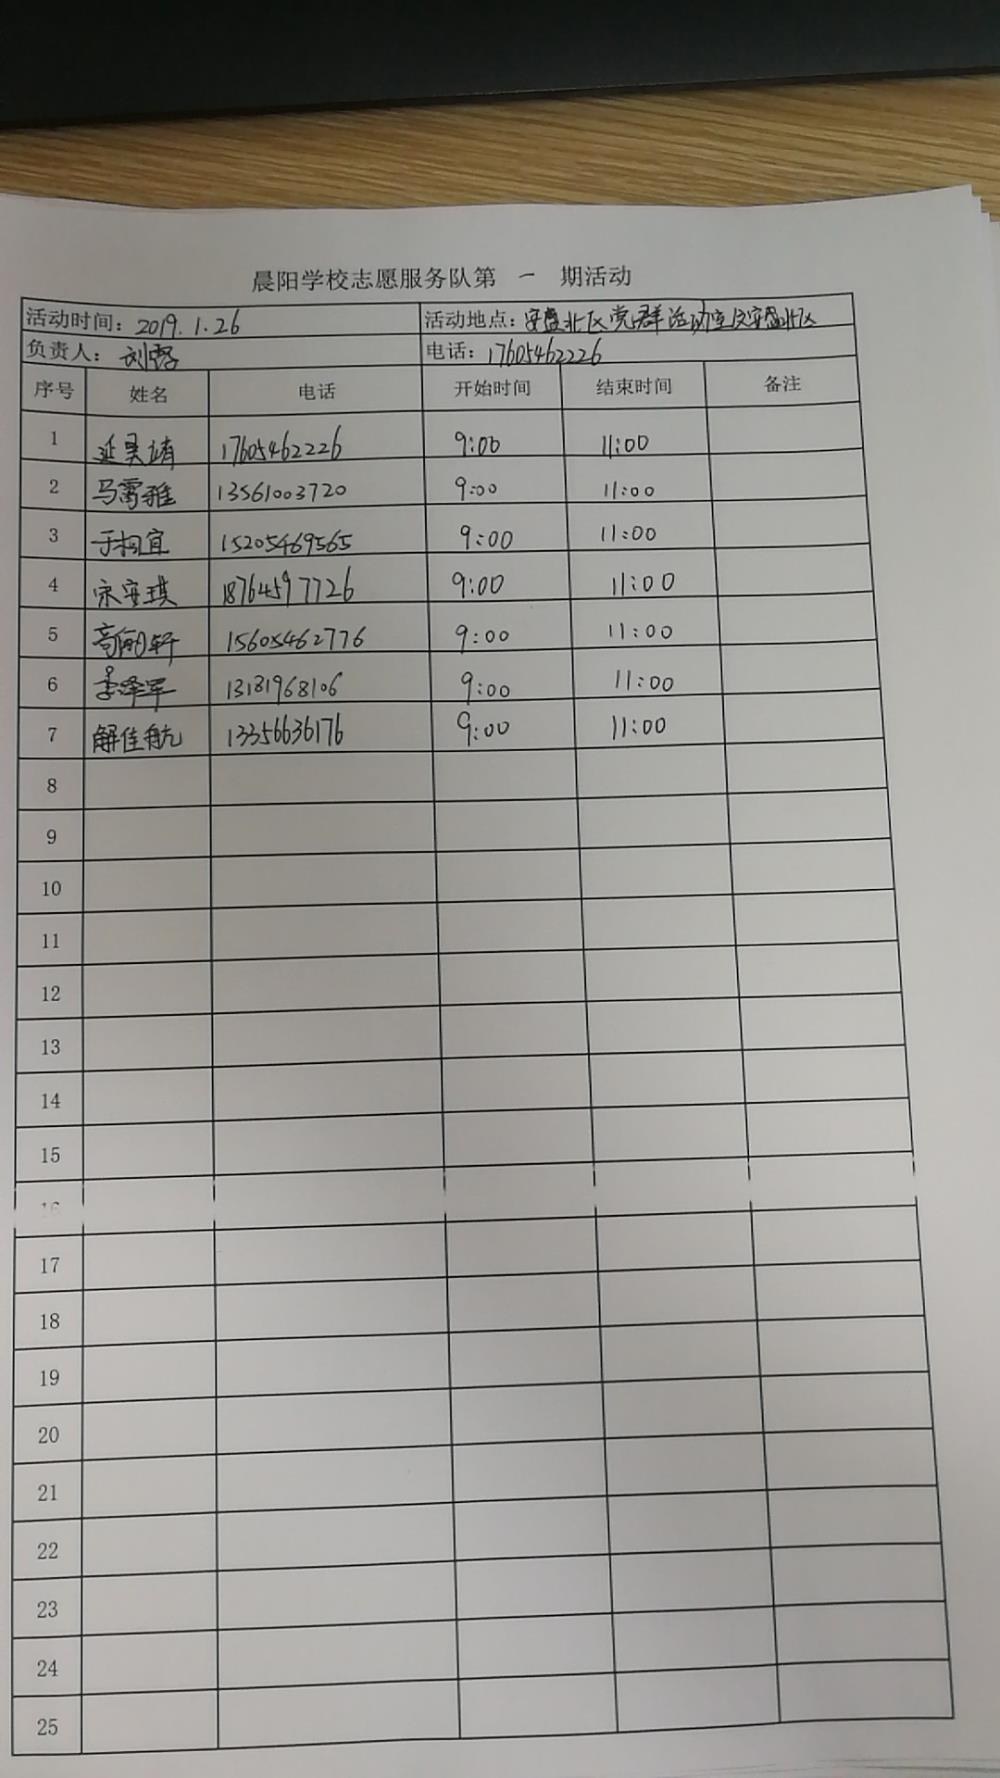 晨阳学校志愿服务队第 一 期活动
活动时间：2019.1.26 活动地点：安盛北区党群活动室及安盛北区
负责人：刘 电话：17605462226
序号 姓名 电话 开始时间 结束时间 备注
1 延昊靖 17605462226 9:00 11:00
2 马雪雅 13561003720 9:00 11:00
3 于相宜 15205469565 9:00 11:00
4 宋安琪 18764597726 9:00 11:00
5 轩 15605462776 9:00 11:00
6 李泽军 13181968106 9:00 11:00
7 解佳航 13356636176 9:00 11:00
8
9
10
11
12
13
14
15
16
17
18
19
20
21
22
23
24
25